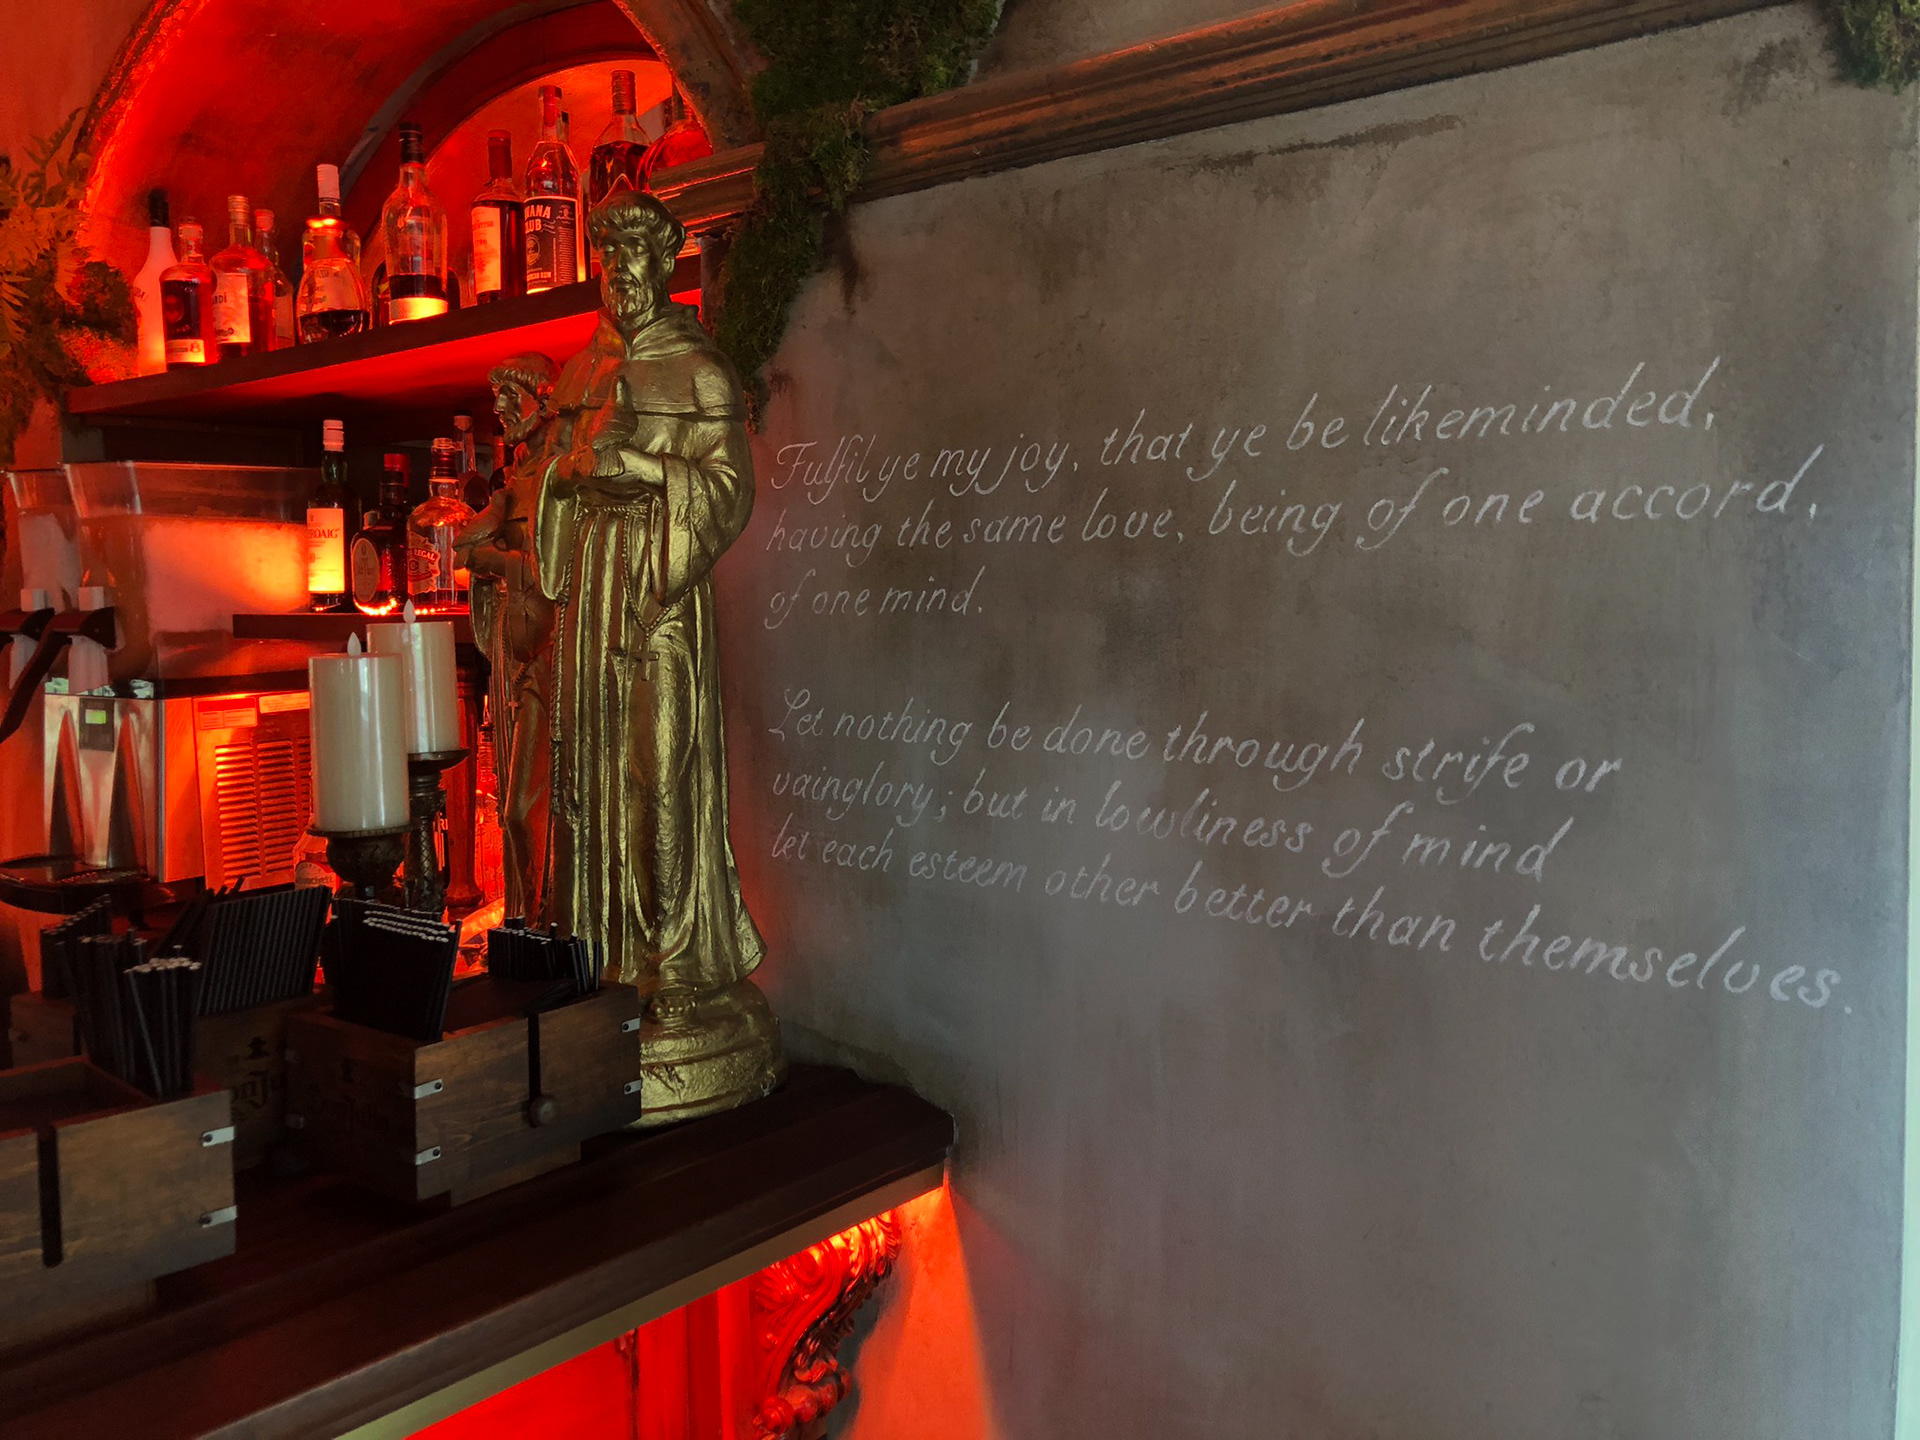 Fulfil ye my joy, that ye be likeminded,
having the same love, being of one accord,
of one mind.
Let nothing be done through strife or
vainglory; but in lowliness of mind
let each esteem other better than themselves.